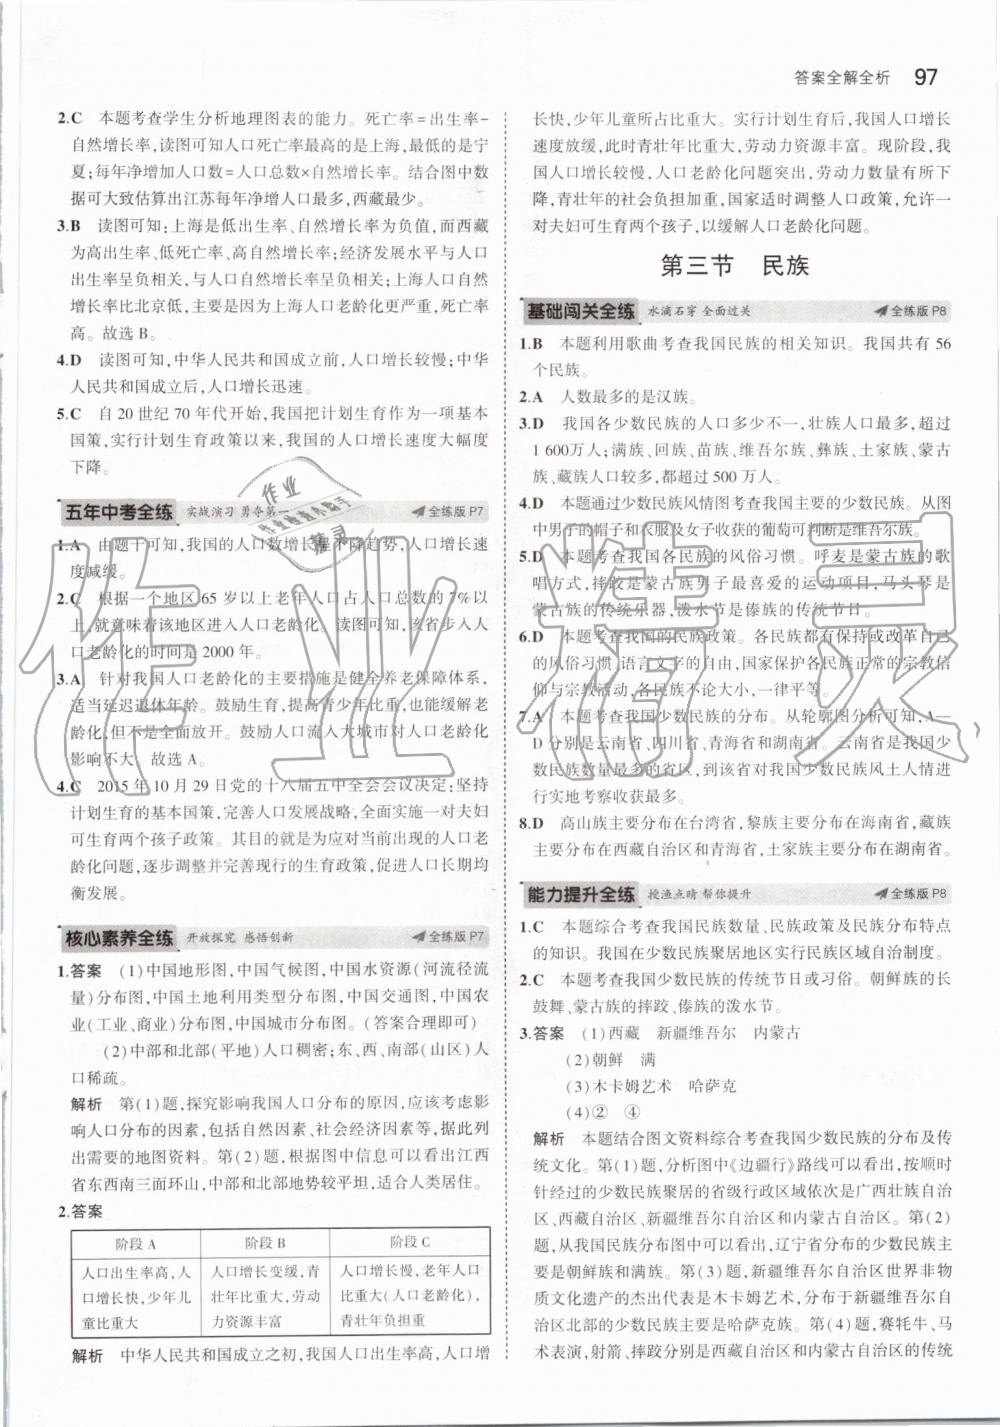 答案全解全析 97
2.C 本题考查学生分析地理图表的能力。死亡率=出生率-
自然增长率,读图可知人口死亡率最高的是上海,最低的是宁
夏;每年净增加人口数=人口总数×自然增长率。结合图中数
据可大致估算出江苏每年净增人口最多,西藏最少。
3.B 读图可知:上海是低出生率、自然增长率为负值,而西藏
为高出生率、低死亡率、高自然增长率;经济发展水平与人口
出生率呈负相关,与人口自然增长率呈负相关;上海人口自然
增长率比北京低,主要是因为上海人口老龄化更严重,死亡率
高。故选 B。
4.D 读图可知,中华人民共和国成立前,人口增长较慢;中华
人民共和国成立后,人口增长迅速。
5.C 自 20 世纪 70 年代开始,我国把计划生育作为一项基本
国策,实行计划生育政策以来,我国的人口增长速度大幅度
下降。
五年中考全练 实战演习 勇夺第一 全练版 P7
1.A 由题干可知,我国的人口数增长呈下降趋势,人口增长速
度减缓。
2.C 根据一个地区 65 岁以上老年人口占人口总数的 7%以
上,就意味着该地区进入人口老龄化。读图可知,该省步入人
口老龄化的时间是 2000 年。
3.A 针对我国人口老龄化的主要措施是健全养老保障体系,
适当延迟退休年龄。鼓励生育,提高青少年比重,也能缓解老
龄化,但不是全面放开。鼓励人口流入大城市对人口老龄化
影响不大。故选 A。
4.C 2015 年 10 月 29 日党的十八届五中全会会议决定:坚持
计划生育的基本国策,完善人口发展战略,全面实施一对夫妇
可生育两个孩子政策。其目的就是为应对当前出现的人口老
龄化问题,逐步调整并完善现行的生育政策,促进人口长期均
衡发展。
核心素养全练 开放探究 感悟创新 全练版 P7
1.答案 (1)中国地形图,中国气候图,中国水资源(河流径流
量)分布图,中国土地利用类型分布图,中国交通图,中国农
业(工业、商业)分布图,中国城市分布图。(答案合理即可)
(2)中部和北部(平地)人口稠密;东、西、南部(山区)人
口稀疏。
解析 第(1)题,探究影响我国人口分布的原因,应该考虑影
响人口分布的因素,包括自然因素、社会经济因素等,据此列
出需要的地图资料。第(2)题,根据图中信息可以看出江西
省东西南三面环山,中部和北部地势较平坦,适合人类居住。
2.答案
阶段 A 阶段 B 阶段 C
人口出生率高,人 人口增长变缓,青 人口增长慢,老年人口
口增长快,少年儿 壮年比重大,劳动 比重大(人口老龄化),
童比重大 力资源丰富 青壮年负担重
解析 中华人民共和国成立之初,我国人口出生率高,人口增
长快,少年儿童所占比重大。实行计划生育后,我国人口增长
速度放缓,此时青壮年比重大,劳动力资源丰富。现阶段,我
国人口增长较慢,人口老龄化问题突出,劳动力数量有所下
降,青壮年的社会负担加重,国家适时调整人口政策,允许一
对夫妇可生育两个孩子,以缓解人口老龄化问题。
第三节 民族
基础闯关全练 水滴石穿 全面过关 全练版 P8
1.B 本题利用歌曲考查我国民族的相关知识。我国共有 56
个民族。
2.A 人数最多的是汉族。
3.D 我国各少数民族的人口多少不一,壮族人口最多,超过
1 600万人;满族、回族、苗族、维吾尔族、彝族、土家族、蒙古
族、藏族人口较多,都超过 500 万人。
4.D 本题通过少数民族风情图考查我国主要的少数民族。从图
中男子的帽子和衣服及女子收获的葡萄可判断是维吾尔族。
5.D 本题考查我国各民族的风俗习惯。呼麦是蒙古族的歌
唱方式,摔跤是蒙古族男子最喜爱的运动项目,马头琴是
蒙古族的传统乐器,泼水节是傣族的传统节日。
6.D 本题考查我国的民族政策。各民族都有保持或改革自己
的风俗习惯、语言文字的自由,国家保护各民族正常的宗教信
仰与宗教活动,各民族不论大小,一律平等。
7.A 本题考查我国少数民族的分布。从轮廓图分析可知,A—
D 分别是云南省、四川省、青海省和湖南省。云南省是我国少
数民族数量最多的省区,到该省对少数民族风土人情进
行实地考察收获最多。
8.D 高山族主要分布在台湾省,黎族主要分布在海南省,藏族
主要分布在西藏自治区和青海省,土家族主要分布在湖南省。
能力提升全练 授渔点睛 帮你提升 全练版 P8
1.C 本题综合考查我国民族数量、民族政策及民族分布特点
的知识。我国在少数民族聚居地区实行民族区域自治制度。
2.C 本题考查我国少数民族的传统节日或习俗。朝鲜族的长
鼓舞、蒙古族的摔跤、傣族的泼水节。
3.答案 (1)西藏 新疆维吾尔 内蒙古
(2)朝鲜 满
(3)木卡姆艺术 哈萨克
(4)② ④
解析 本题结合图文资料综合考查我国少数民族的分布及传
统文化。第(1)题,分析图中《边疆行》路线可以看出,按顺时
针经过的少数民族聚居的省级行政区域依次是广西壮族自治
区、西藏自治区、新疆维吾尔自治区和内蒙古自治区。第(2)
题,从我国民族分布图中可以看出,辽宁省分布的少数民族主
要是朝鲜族和满族。第(3)题,新疆维吾尔自治区世界非物
质文化遗产的杰出代表是木卡姆艺术,分布于新疆维吾尔自
治区北部的少数民族主要是哈萨克族。第(4)题,赛牦牛、马
术表演,射箭、摔跤分别是西藏自治区和内蒙古自治区的传统
作业精灵